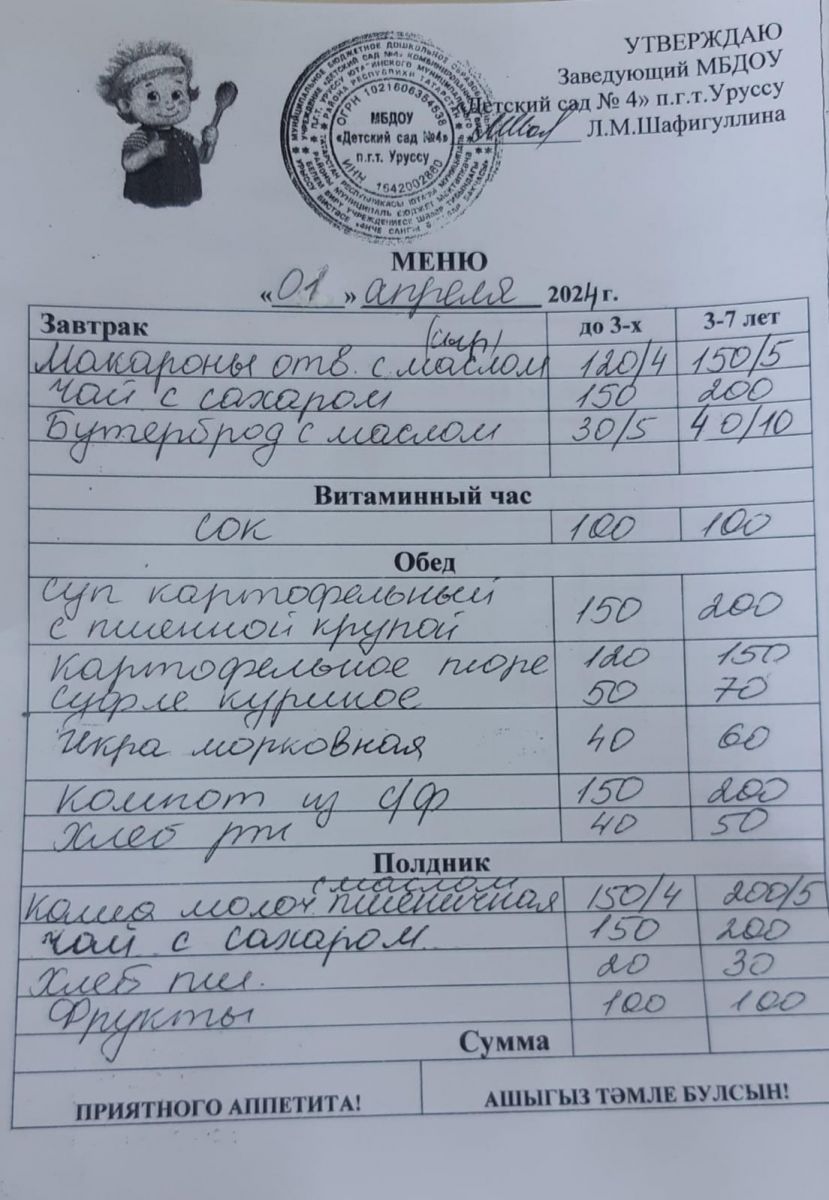 УТВЕРЖДАЮ
Заведующий МБДОУ
«Детский сад № 4» п.г.т.Уруссу
Л.М.Шафигуллина
ОГРН 1021606364538
МБДОУ
«Детский сад №4»
п.г.т. Уруссу
ИНН 1642002860
МЕНЮ
«01» апреля 2024 г.
Завтрак до 3-х 3-7 лет
(сыр)
Макароны отв. с маслом 120/4 150/5
Чай с сахаром 150 200
Бутерброд с маслом 30/5 40/10
Витаминный час
сок 100 100
Обед
суп картофельный
с пшенной крупой 150 200
Картофельное пюре 120 150
суфле куриное 50 70
Икра морковная 40 60
Компот из с/ф 150 200
Хлеб рж 40 50
Полдник
с маслом
Каша молоч пшеничная 150/4 200/5
Чай с сахаром 150 200
Хлеб пш. 20 30
Фрукты 100 100
Сумма
ПРИЯТНОГО АППЕТИТА! АШЫГЫЗ ТӘМЛЕ БУЛСЫН!